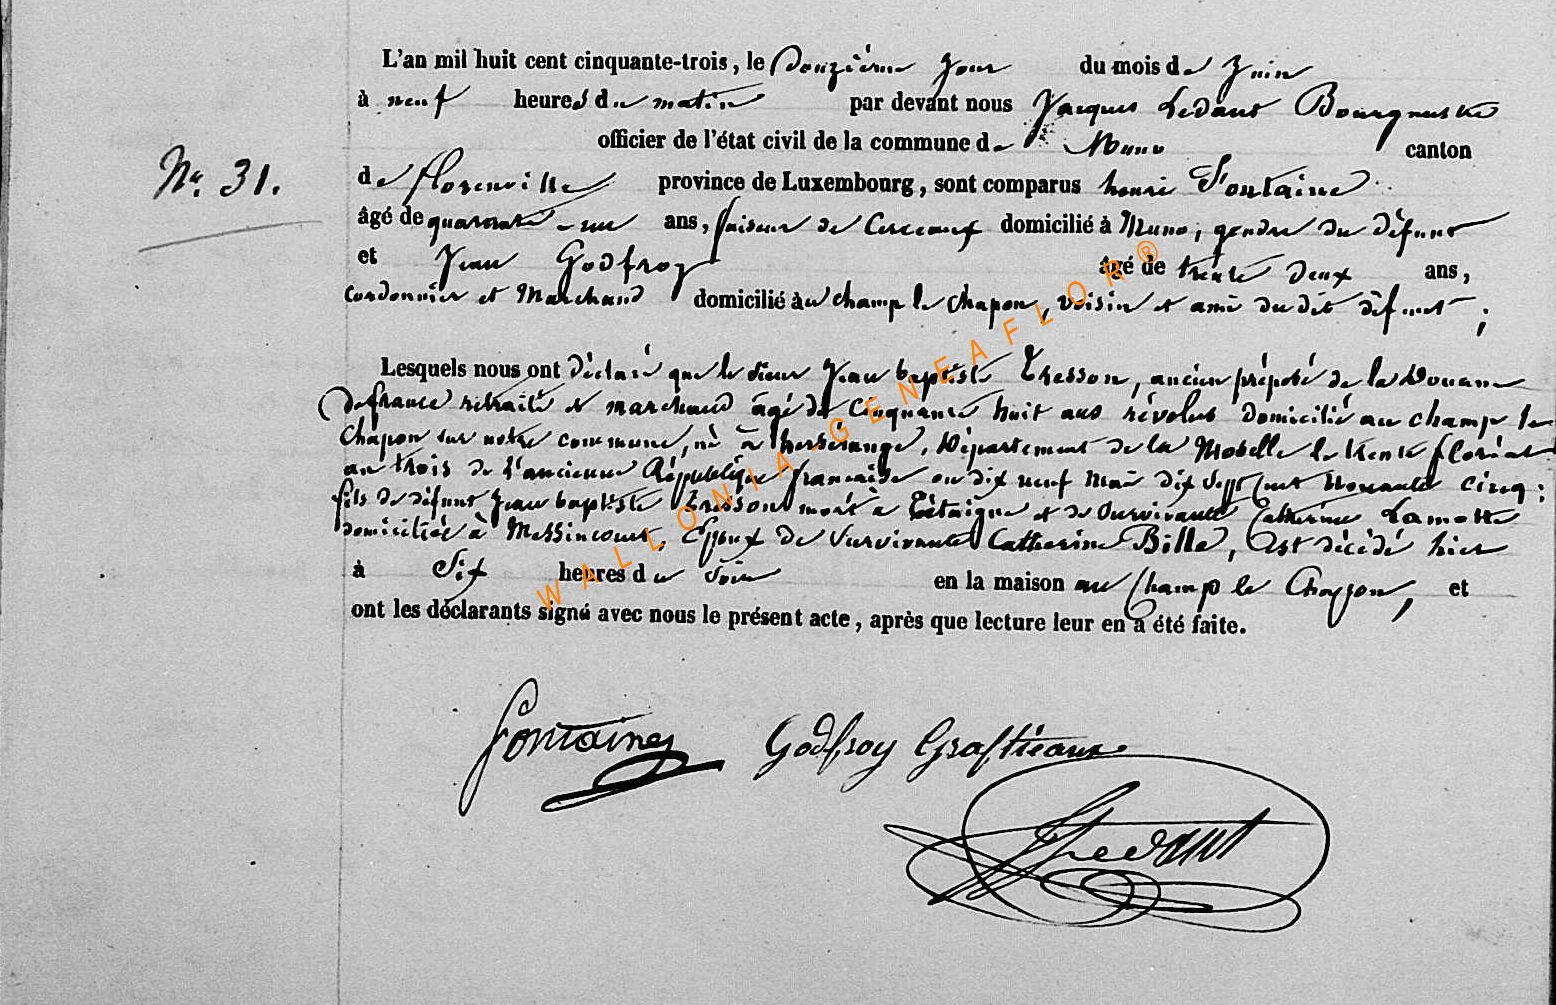 L'an mil huit cent cinquante-trois, le Douzième jour du mois de Juin
à neuf heures du matin par devant nous Jacques Ledant Bourgmestre
officier de l'état civil de la commune de Muno canton
N° 31.
de florenville province de Luxembourg, sont comparus henri Fontaine
âgé de quarante-un ans, faiseur de Cerceaux domicilié à Muno, gendre du défunt
et Jean Godfroy âgé de trente deux ans,
Cordonnier et Marchand domicilié au champ le chapon, voisin et ami du dit défunt;
Lesquels nous ont déclaré que le sieur Jean baptiste Tresson, ancien préposé de la Douane
de france retraité et marchand âgé de Cinquante huit ans révolus domicilié au champ le
Chapon sur notre commune, né à herserange, Département de la Moselle le trente floréal
an trois de l'ancienne République française ou dix neuf mai dix sept cent nonante cinq;
fils de défunt Jean baptiste Tresson mort à Tétaigne et de survivante Catherine Lamotte
domiciliée à Messincourt, Epoux de survivante Catherine Bille, Est décédé hier
à Six heures du soir en la maison au Champ le Chapon, et
ont les déclarants signé avec nous le présent acte, après que lecture leur en a été faite.
Fontaine Godfroy Graftieaux
JLedant
WALLONIA-GENEAFLOR®